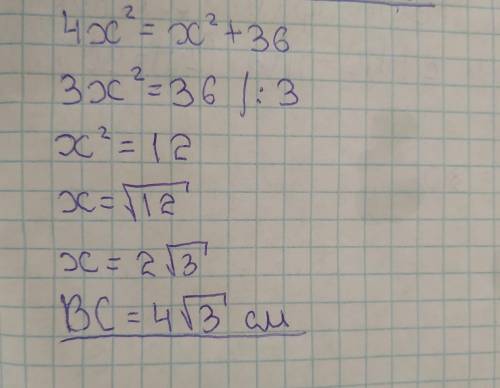 4x² = x² + 36
3x² = 36 /: 3
x² = 12
x = √12
x = 2√3
BC = 4√3 см